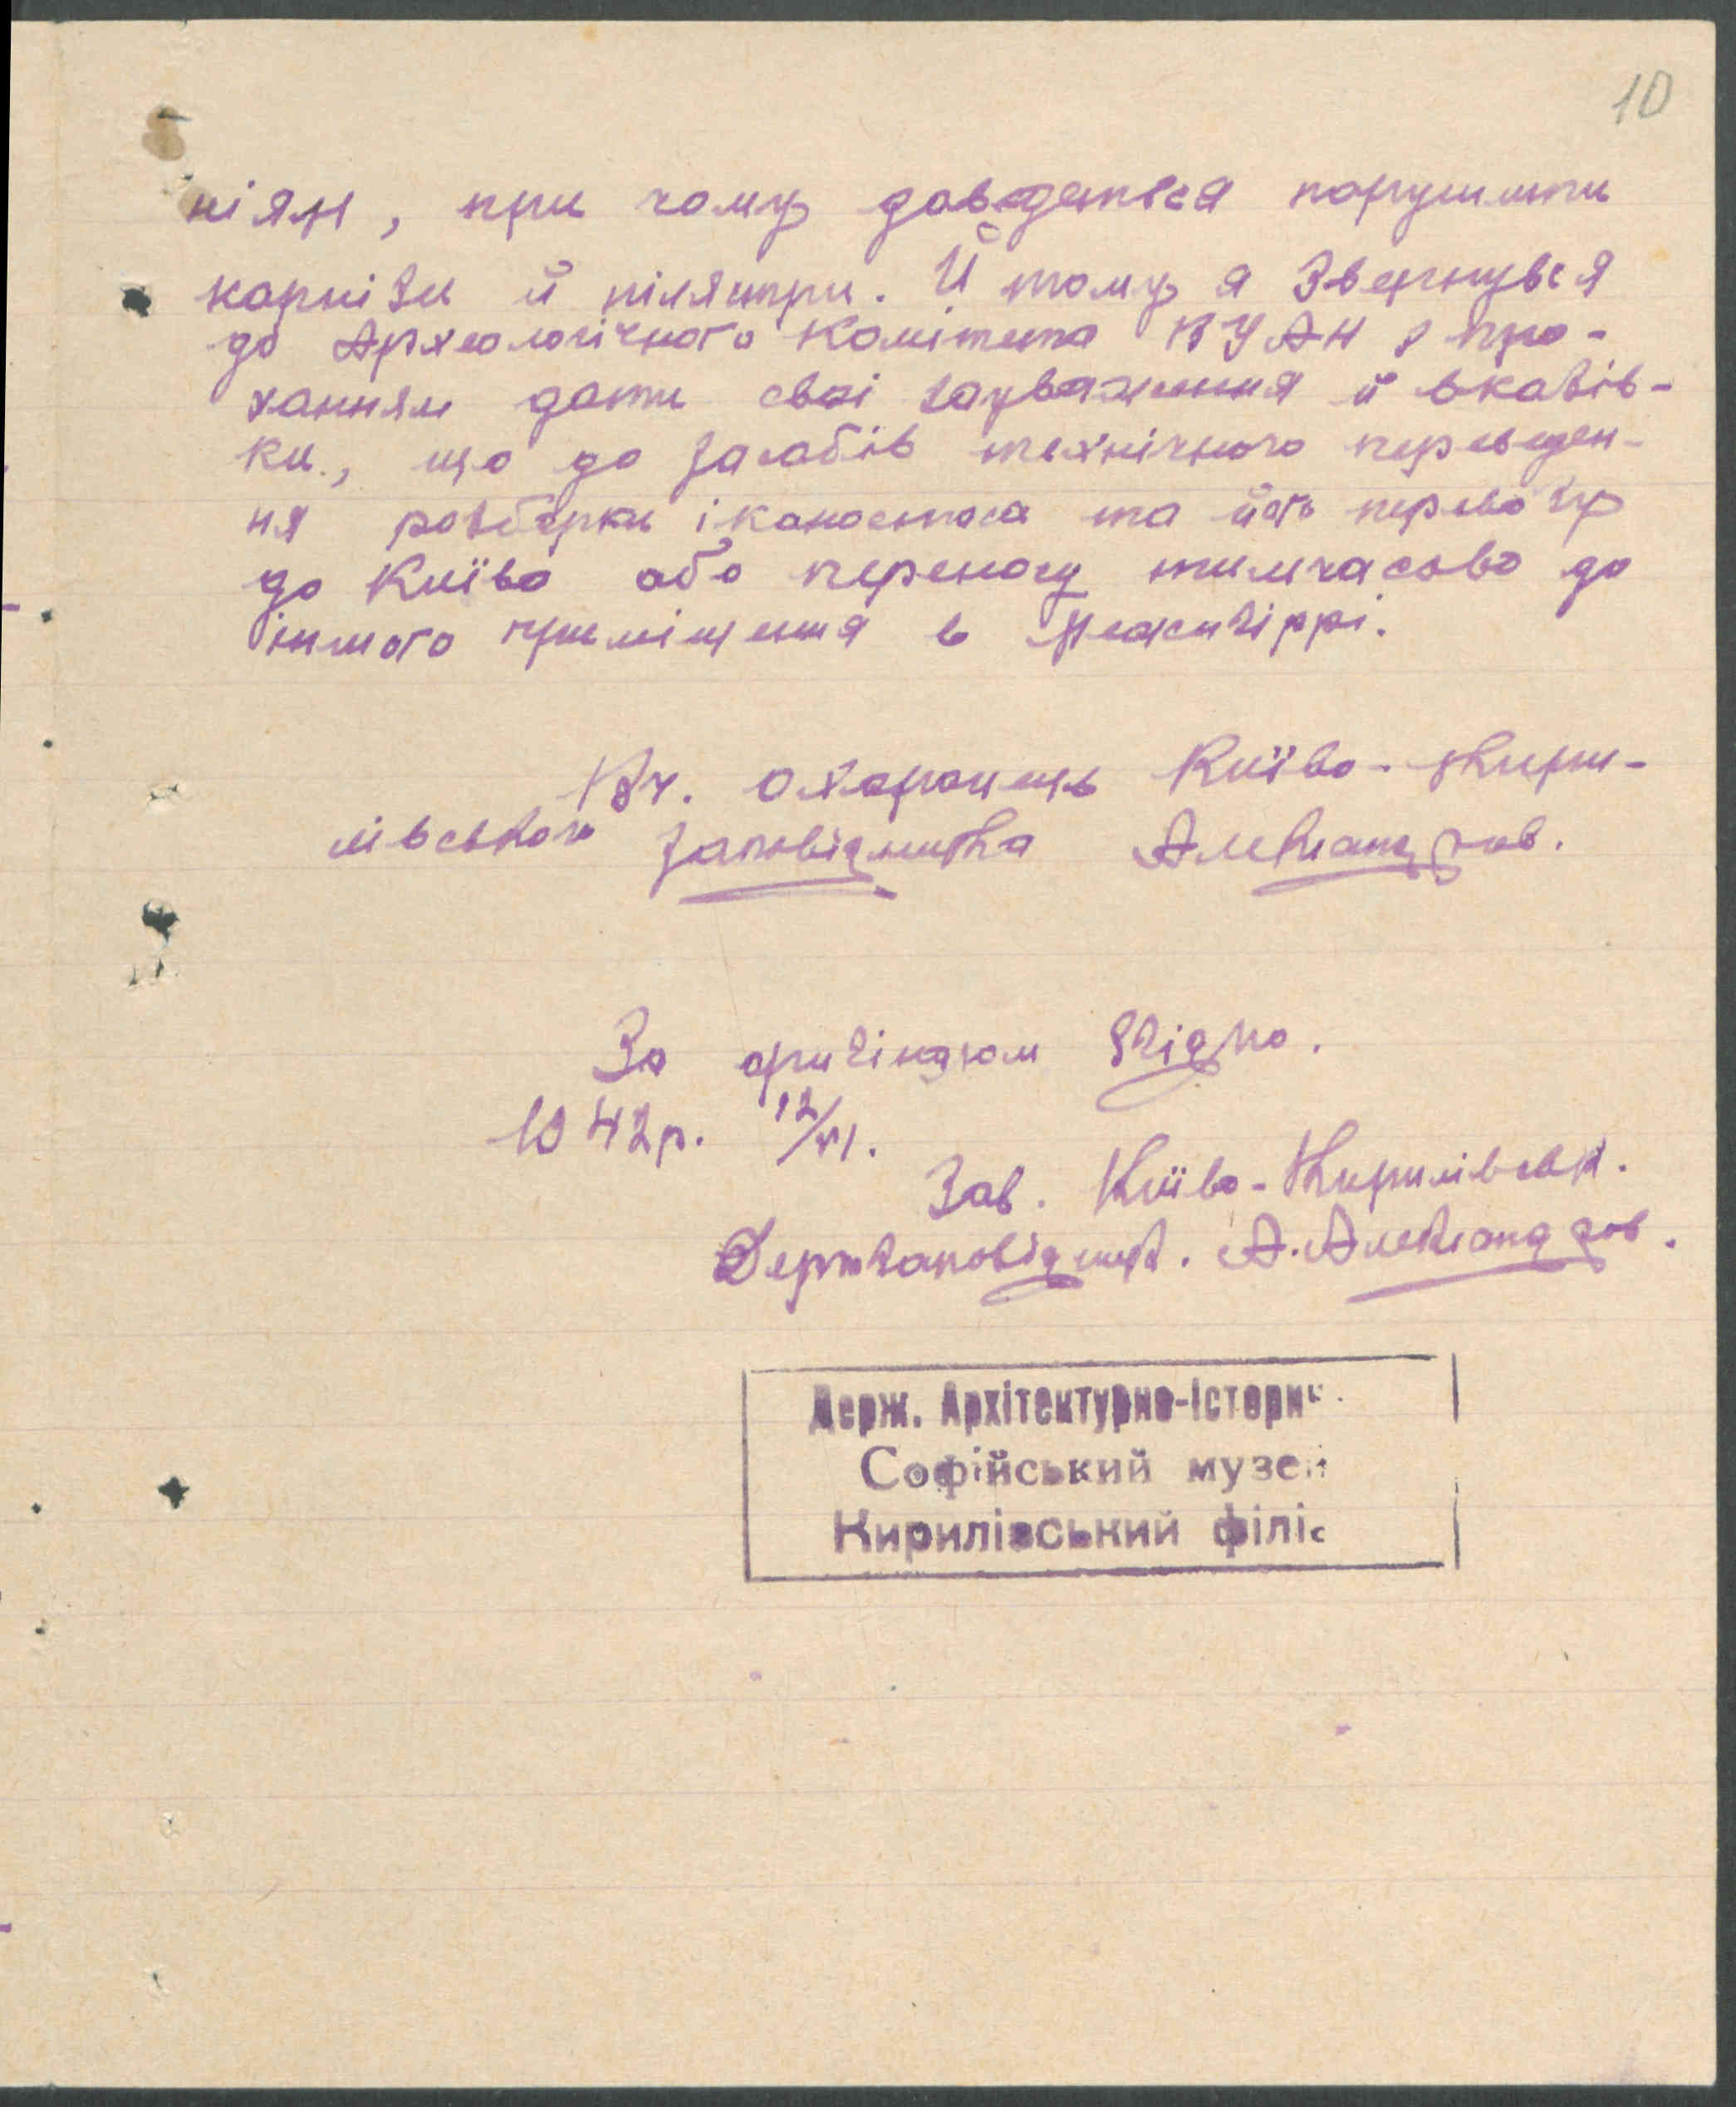 10
ніян, при чому доведеться порушити
карнізи й пілястри. Й тому я звернувся
до Археологічного Комітета ВУАН з про-
ханням дати свої зауваження й вказів-
ки, що до засобів технічного переведен-
ня розбірки іконостаса та його перевозу
до Київа або переносу тимчасово до
іншого приміщення в Межигіррі.
Вч. охоронець Київо-Кири-
лівського заповідника Александров.
За оригіналом згідно.
1942р. 12/VI.
Зав. Київо-Кирилівськ.
Держзаповідник. А. Александров.
Держ. Архітектурно-Історич.
Софійський музей
Кирилівський філіс